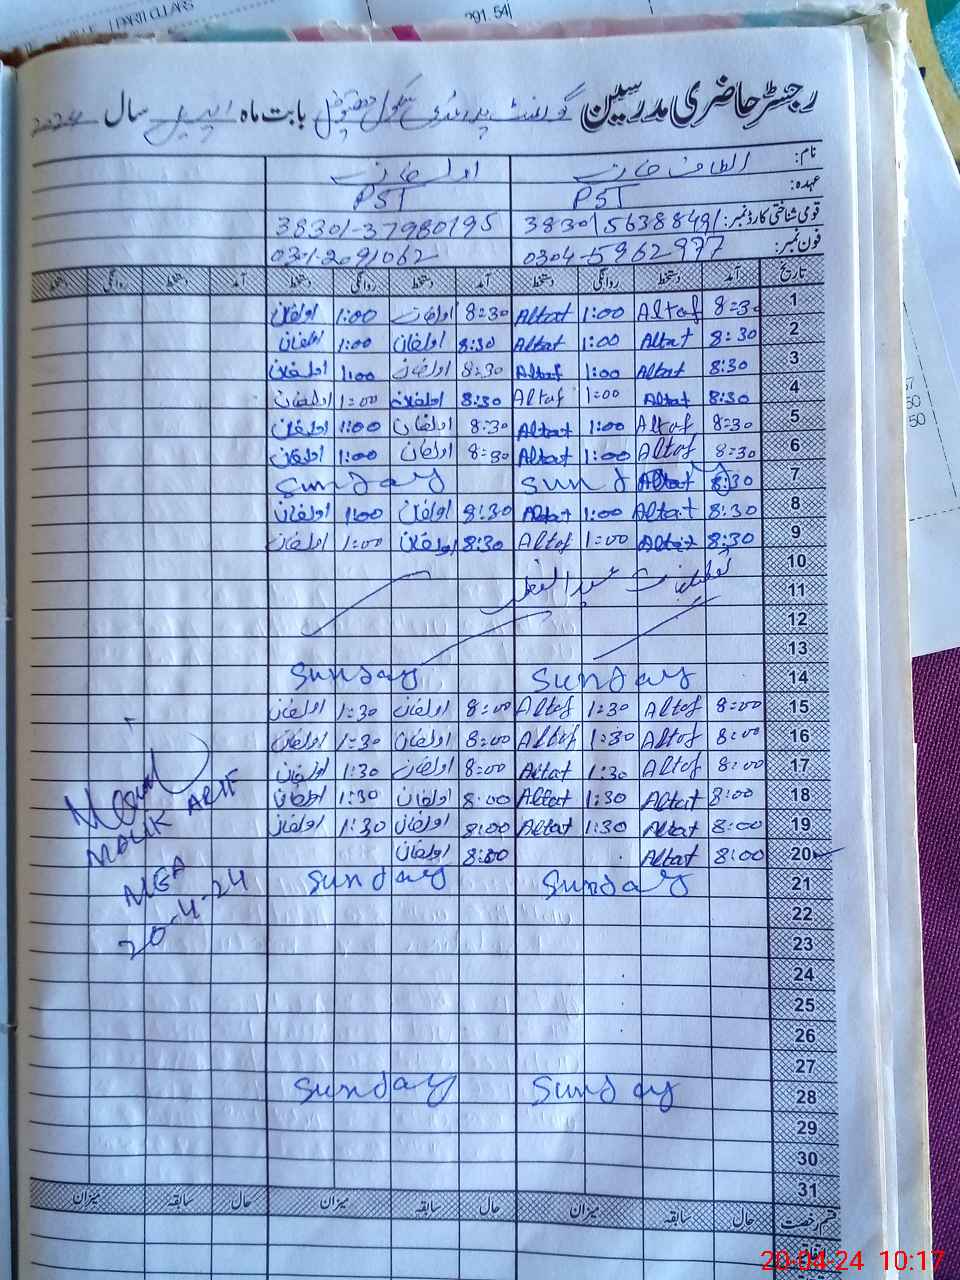 PARTICULARS
291.54
رجسٹر حاضری مدرسین گورنمنٹ پرائمری سکول بابت ماہ اپریل سال 2024
نام: الطاف خان اول خان
عہدہ: PST PST
قومی شناختی کارڈ نمبر: 38301-37980195
فون نمبر: 0304-5962977 0301-2091062
تاریخ آمد دستخط روانگی دستخط آمد دستخط روانگی دستخط آمد دستخط روانگی دستخط
1 8=30 Altaf 1:00 Altaf 8=30 اولخان 1:00 اولخان
2 8:30 Altaf 1:00 Altaf 8:30 اولخان 1:00 اولخان
3 8:30 Altaf 1:00 Altaf 8=30 اولخان 1:00 اولخان
4 8:30 Altaf 1:00 Altaf 8:30 اولخان 1:00 اولخان
5 8=30 Altaf 1:00 Altaf 8:30 اولخان 1:00 اولخان
6 8=30 Altaf 1:00 Altaf 8=30 اولخان 1:00 اولخان
7 8:30 Altaf Sunday Sunday
8 8:30 Altaf 1:00 Altaf 8:30 اولخان 1:00 اولخان
9 8:30 Altaf 1:00 Altaf 8:30 اولخان 1:00 اولخان
10
11 تعطیلات عید الفطر
12
13
14 Sunday Sunday
15 8:00 Altaf 1:30 Altaf 8:00 اولخان 1:30 اولخان
16 8:00 Altaf 1:30 Altaf 8:00 اولخان 1:30 اولخان
17 8:00 Altaf 1:30 Altaf 8:00 اولخان 1:30 اولخان
18 8:00 Altaf 1:30 Altaf 8:00 اولخان 1:30 اولخان
19 8:00 Altaf 1:30 Altaf 8:00 اولخان 1:30 اولخان
20 8:00 Altaf 8:00 اولخان
21 Sunday Sunday
MALIK ARIF
MEA
20-4-24
22
23
24
25
26
27
28 Sunday Sunday
29
30
31
قسم رخصت حال سابقہ میزان حال سابقہ میزان حال سابقہ میزان
اتفاقیہ
20-04-24 10:17